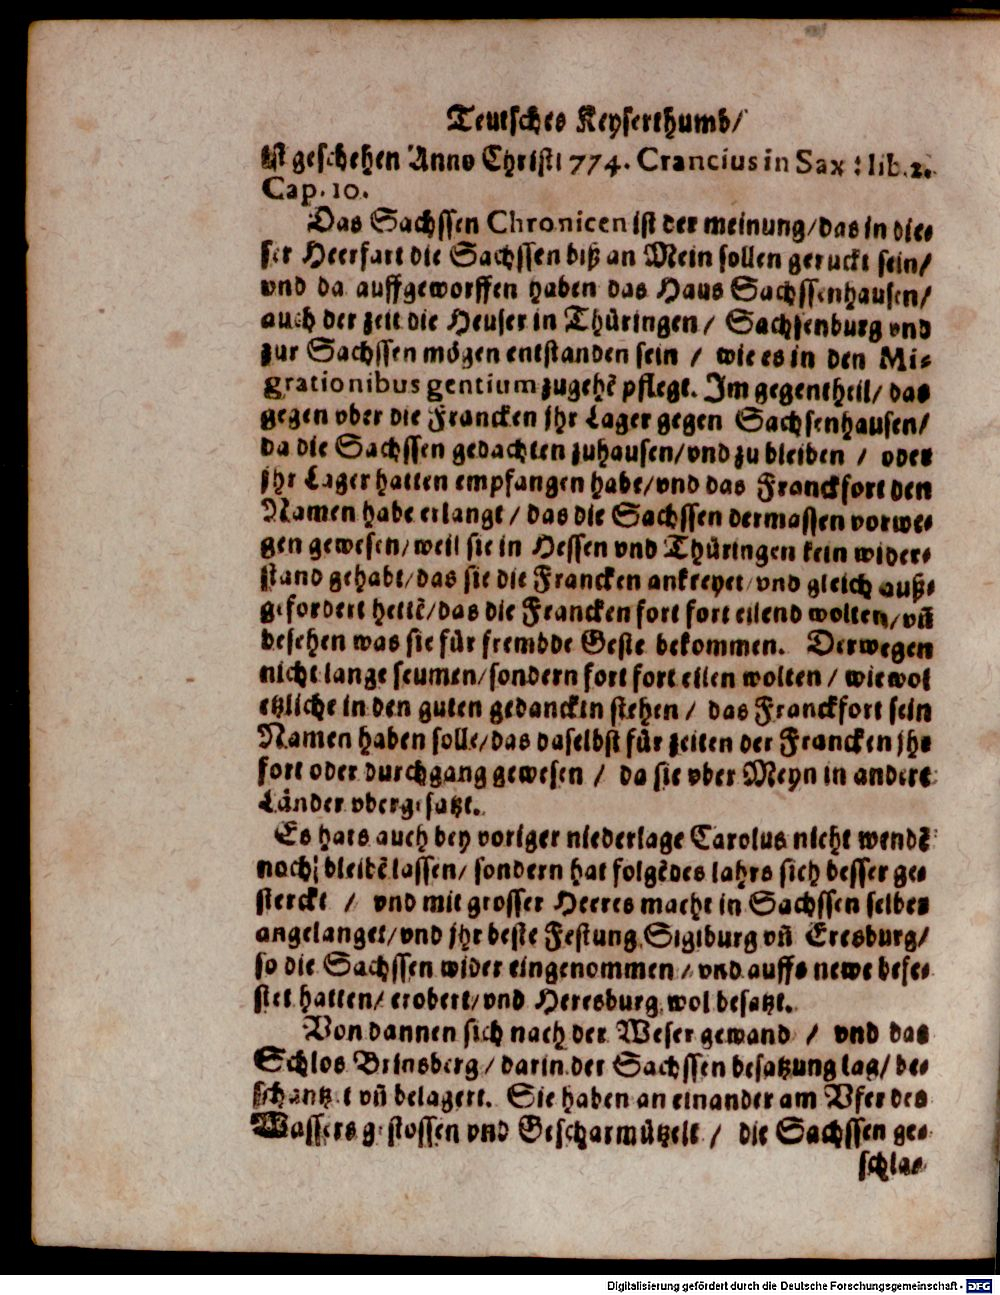 Teutsches Keyserthumb/
Ist geschehen Anno Christi 774. Crancius in Sax: lib. 2.
Cap. 10.
Das Sachssen Chronicen ist der meinung/das in die⸗
ser Heerfart die Sachssen biß an Mein sollen geruckt sein/
vnd da auffgeworffen haben das Haus Sachssenhausen/
auch der zeit die Heuser in Thüringen/ Sachsenburg vnd
zur Sachssen mögen entstanden sein / wie es in den Mi⸗
grationibus gentium zugehẽ pflegt. Im gegentheil/ das
gegen vber die Francken jhr Lager gegen Sachsenhausen/
da die Sachssen gedachten zuhausen/vnd zu bleiben / oder
jhr Lager hatten empfangen habe/vnd das Franckfort den
Namen habe erlangt/ das die Sachssen dermassen vorwe⸗
gen gewesen/weil sie in Hessen vnd Thüringen kein wider⸗
stand gehabt/das sie die Francken ankreyet/vnd gleich auß⸗
gefordert hettẽ/das die Francken fort fort eilend wolten/vñ
besehen was sie für frembde Geste bekommen. Derwegen
nicht lange seumen/sondern fort fort eilen wolten / wiewol
etzliche in den guten gedanckin stehen / das Franckfort sein
Namen haben solle/das daselbst für zeiten der Francken jhr
fort oder durchgang gewesen / da sie vber Meyn in andere
Länder vbergesatzt.
Es hats auch bey voriger niederlage Carolus nicht wendẽ
noch bleibẽ lassen/ sondern hat folgẽdes Iahrs sich besser ge⸗
sterckt / vnd mit grosser Heeres macht in Sachssen selber
angelanget/vnd jhr beste Festung Sigiburg vñ Eresburg/
so die Sachssen wider eingenommen/ vnd auffs newe befe⸗
stet hatten/ erobert/vnd Heresburg wol besatzt.
Von dannen sich nach der Weser gewand / vnd das
Schlos Brinsberg/ darin der Sachssen besatzung lag/ be⸗
schantzet vñ belagert. Sie haben an einander am Vfer des
Wassers gestossen vnd Gescharmützelt / die Sachssen ge⸗
schla⸗
Digitalisierung gefördert durch die Deutsche Forschungsgemeinschaft - DFG